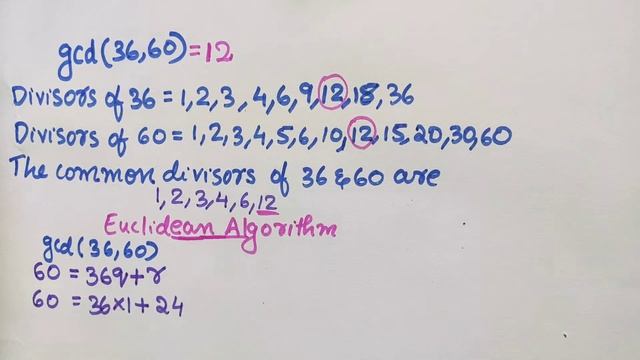 gcd(36,60)=12
Divisors of 36 = 1,2,3,4,6,9,12,18,36
Divisors of 60 = 1,2,3,4,5,6,10,12,15,20,30,60
The common divisors of 36 & 60 are
1,2,3,4,6,12
Euclidean Algorithm
gcd(36,60)
60 = 36q+r
60 = 36×1+24